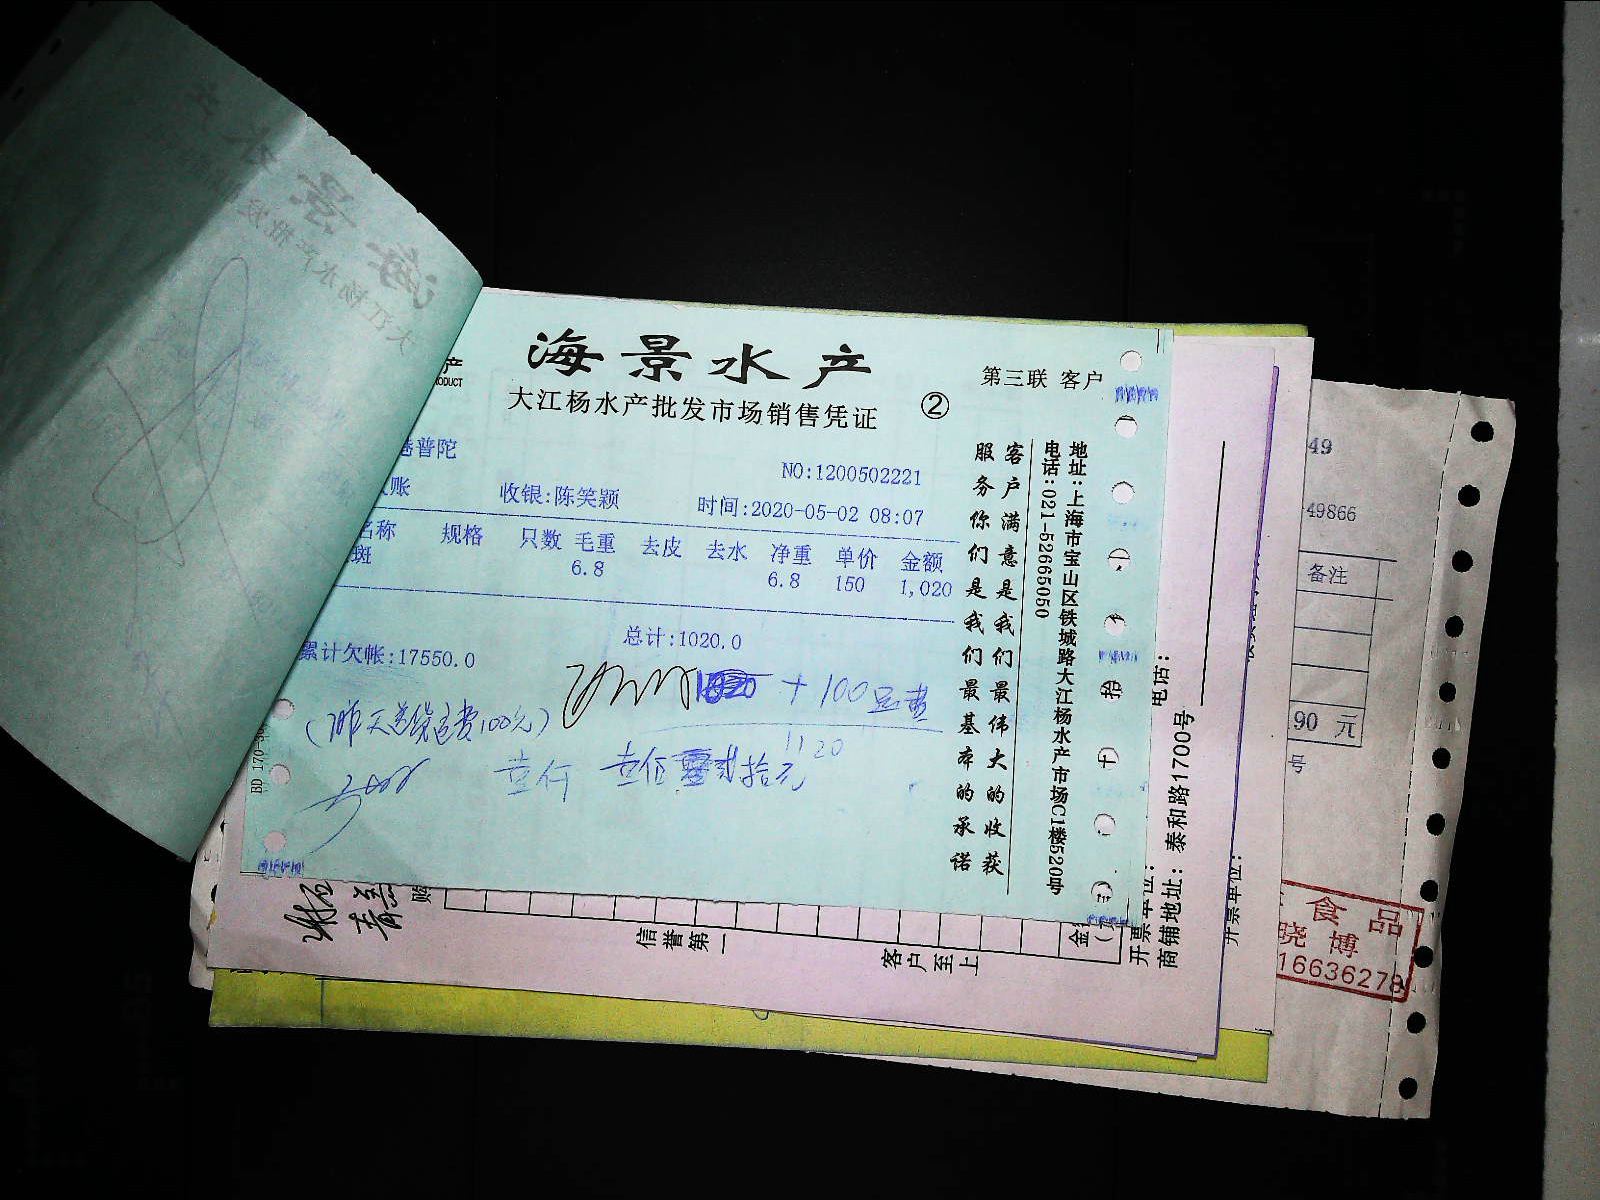 海景水产
第三联 客户
大江杨水产批发市场销售凭证
②
产
ODUCT
普陀
NO:1200502221
账
收银:陈笑颖
时间:2020-05-02 08:07
名称 规格 只数 毛重 去皮 去水 净重 单价 金额
斑 6.8 6.8 150 1,020
总计:1020.0
累计欠帐:17550.0
+100
(昨天送货运费100元)
1120
壹仟 壹佰 贰拾元
客户满意是我们最伟大的收获
服务你们是我们最基本的承诺
地址:上海市宝山区铁城路大江杨水产市场C1楼520号
电话:021-52665050
BD 170-3
拾
电话:
开票单位:
商铺地址: 泰和路1700号
开票单位:
信誉第一
客户至上
购
金
49
49866
备注
90 元
号
食品
晓博
16636278